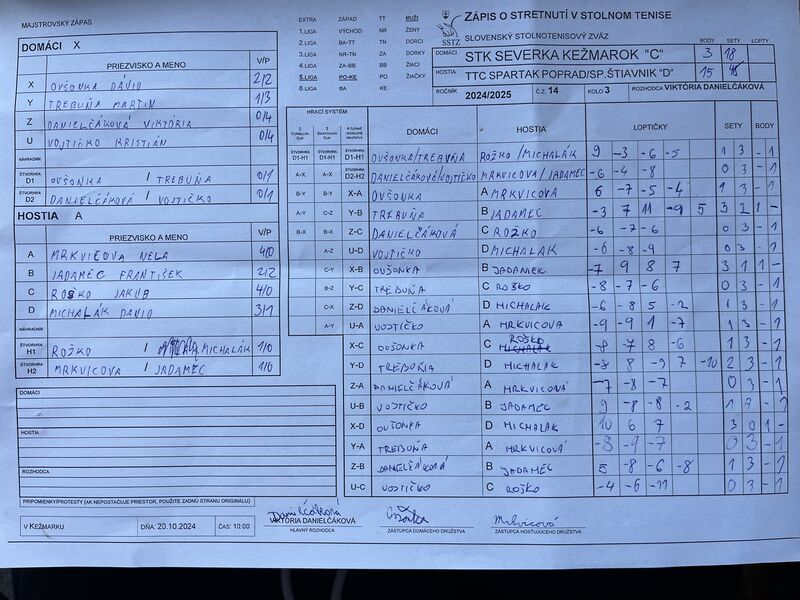 MAJSTROVSKÝ ZÁPAS
DOMÁCI X
PRIEZVISKO A MENO V/P
X OVŠONKA DÁVID 2/2
Y TREBUŇA MARTIN 1/3
Z DANIELČÁKOVÁ VIKTÓRIA 0/4
U VOJTIČKO KRISTIÁN 0/4
NÁHRADNÍK
ŠTVORHRA D1 OVŠONKA / TREBUŇA 0/1
ŠTVORHRA D2 DANIELČÁKOVÁ / VOJTIČKO 0/1
HOSTIA A
PRIEZVISKO A MENO V/P
A MRKVICOVA NELA 4/0
B JADAMEC FRANTIŠEK 2/2
C ROŠKO JAKUB 4/0
D MICHALÁK DAVID 3/1
NÁHRADNÍK
ŠTVORHRA H1 ROŽKO / MICHALÁK 1/0
ŠTVORHRA H2 MRKVICOVA / JADAMEC 1/0
DOMÁCI
HOSTIA
ROZHODCA
PRIPOMIENKY/PROTESTY (AK NEPOSTAČUJE PRIESTOR, POUŽITE ZADNÚ STRANU ORIGINÁLU)
V KEŽMARKU DŇA: 20.10.2024 ČAS: 10:00
EXTRA ZÁPAD TT MUŽI
1.LIGA VÝCHOD NR ŽENY
2.LIGA BA-TT TN DORCI
3.LIGA NR-TN ZA DORKY
4.LIGA ZA-BB BB ŽIACI
5.LIGA PO-KE PO ŽIAČKY
6.LIGA BA KE
SSTZ
ZÁPIS O STRETNUTÍ V STOLNOM TENISE
SLOVENSKÝ STOLNOTENISOVÝ ZVÄZ
BODY SETY LOPTY
DOMÁCI STK SEVERKA KEŽMAROK "C" 3 18
HOSTIA TTC SPARTAK POPRAD/SP.ŠTIAVNIK "D" 15
ROČNÍK 2024/2025 Č.Z. 14 KOLO 3 ROZHODCA VIKTÓRIA DANIELČÁKOVÁ
HRACÍ SYSTÉM
DOMÁCI HOSTIA LOPTIČKY SETY BODY
ŠTVORHRA D1-H1 ŠTVORHRA D1-H1 ŠTVORHRA D1-H1 OVŠONKA/TREBUŇA ROŽKO/MICHALÁK 9 -3 -6 -5 1 3 - 1
A-X A-X ŠTVORHRA D2-H2 DANIELČÁKOVÁ/VOJTIČKO MRKVICOVA/JADAMEC -6 -4 -8 0 3 - 1
B-Y B-Y X-A OVŠONKA A MRKVICOVA 6 -7 -5 -4 1 3 - 1
A-Y C-Z Y-B TREBUŇA B JADAMEC -3 7 11 -9 5 3 2 1 -
B-X B-X Z-C DANIELČÁKOVÁ C ROŽKO -6 -7 -6 0 3 - 1
A-Z U-D VOJTIČKO D MICHALAK -6 -8 -9 0 3 - 1
C-Y X-B OVŠONKA B JADAMEK -7 9 8 7 3 1 1 -
B-Z Y-C TREBUŇA C ROŠKO -8 -7 -6 0 3 - 1
C-X Z-D DANIELČÁKOVÁ D MICHALAK -6 -8 5 -2 1 3 - 1
A-Y U-A VOJTIČKO A MRKVICOVA -9 -9 1 -7 1 3 - 1
X-C OVŠONKA C ROŠKO -8 -7 8 -6 1 3 - 1
Y-D TREBUŇA D MICHALAK -8 8 -9 7 -10 2 3 - 1
Z-A DANIELČÁKOVÁ A MRKVICOVÁ -7 -8 -7 0 3 - 1
U-B VOJTIČKO B JADAMEC 9 -8 -8 -2 1 3 - 1
X-D OVŠONKA D MICHALAK 10 6 7 3 0 1 -
Y-A TREBUŇA A MRKVICOVÁ -8 -9 -7 0 3 - 1
Z-B DANIELČÁKOVÁ B JADAMEC 5 -8 -6 -8 1 3 - 1
U-C VOJTIČKO C ROŠKO -4 -6 -11 0 3 - 1
Danielčáková
VIKTÓRIA DANIELČÁKOVÁ
HLAVNÝ ROZHODCA
ZÁSTUPCA DOMÁCEHO DRUŽSTVA
Mrkvicová
ZÁSTUPCA HOSŤUJÚCEHO DRUŽSTVA